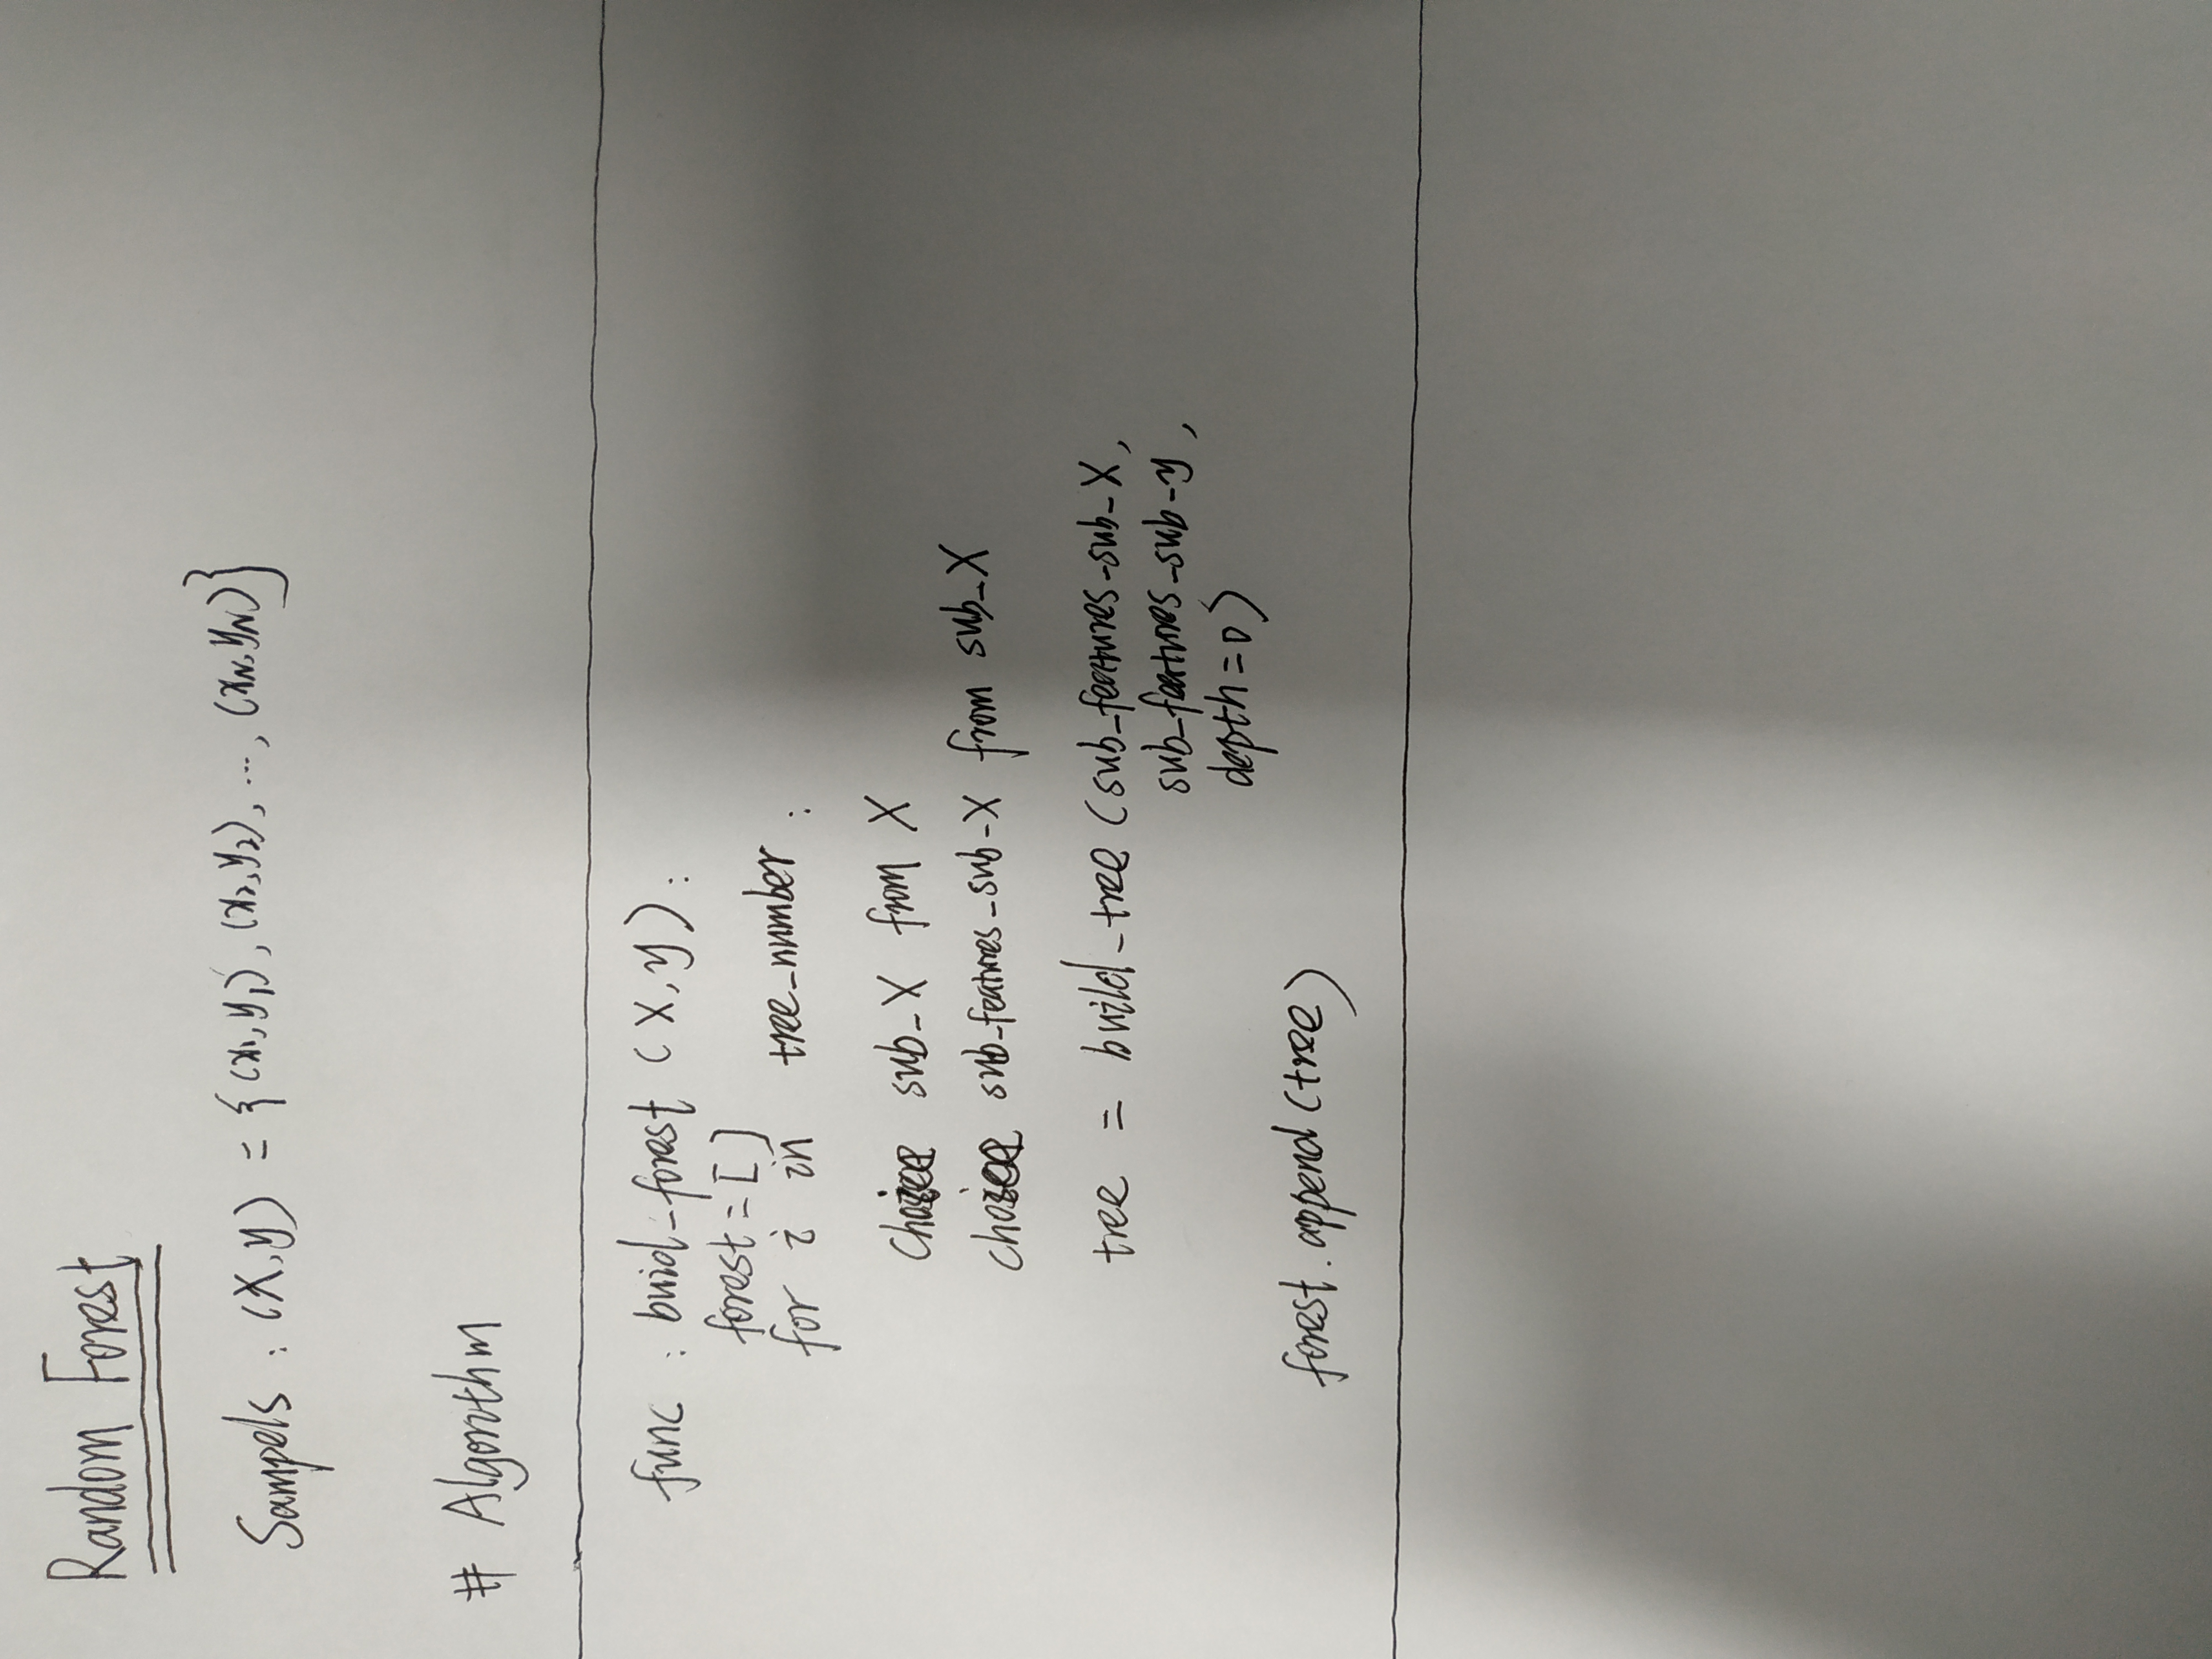 Random Forest
Sampels : (X, y) = {(x₁, y₁), (x₂, y₂), ..., (x_N, y_N)}
# Algorithm
func : buid_forest (X, y) :
forest = [ ]
for i in tree_number :
choice sub_X from X
choice sub_features_sub_X from sub_X
tree = build_tree (sub_features_sub_X,
sub_features_sub_y,
depth = 0)
forest.append(tree)